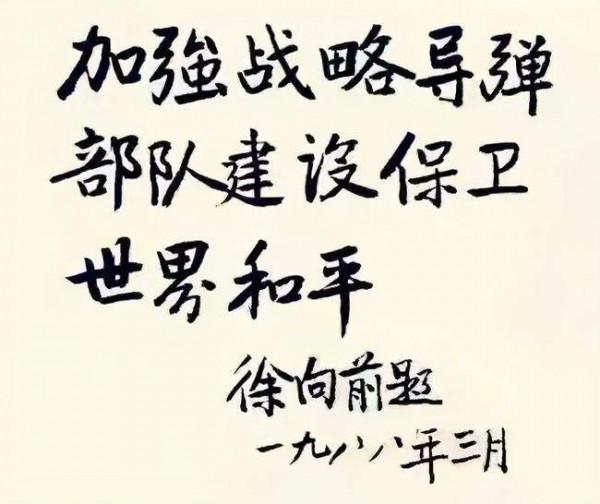 加強战略导弹
部队建设保卫
世界和平
徐向前题
一九八八年三月